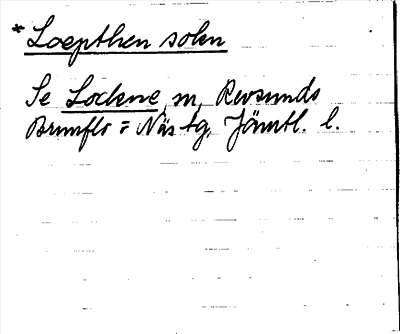 * Loepthen sokn
Se Lockne, sn, Revsunds
Brunflo = Näs tg, Jämtl. l.